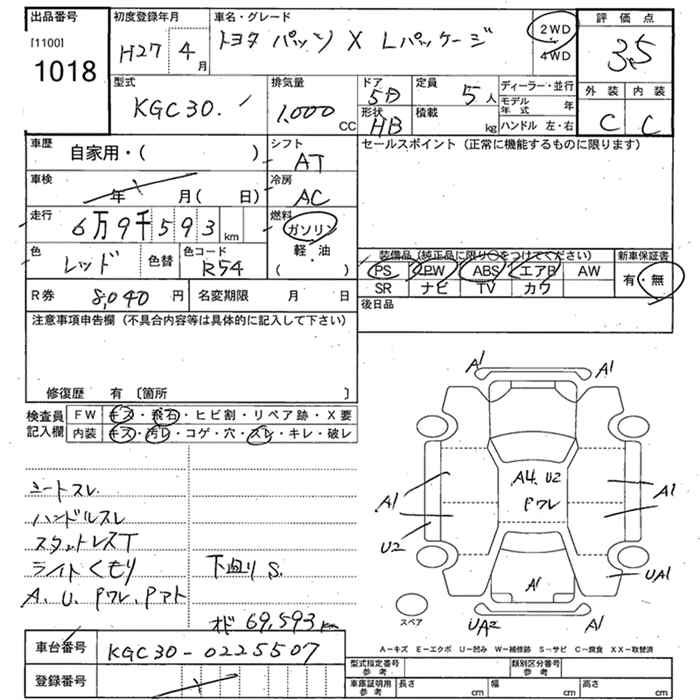 出品番号
[1100]
1018
初度登録年月
H27 4月
車名・グレード
トヨタ パッソ X Lパッケージ
2WD
4WD
評価点
3.5
外装 内装
C C
型式
KGC30
排気量
1,000 CC
ドア
5D
形状
HB
定員
5人
積載
kg
ディーラー・並行
モデル年式 年
ハンドル 左・右
車歴
自家用・( )
シフト
AT
車検
年 月( 日)
冷房
AC
走行
6万9千593 km
燃料
ガソリン
軽・油
( )
色
レッド
色替
色コード
R54
R券 8,040 円
名変期限 月 日
セールスポイント(正常に機能するものに限ります)
装備品(純正品に限り○をつけてください)
PS PW ABS エアB AW
SR ナビ TV カワ
新車保証書
有・無
後日品
注意事項申告欄(不具合内容等は具体的に記入して下さい)
修復歴 有〔箇所 〕
検査員記入欄
FW キズ・飛石・ヒビ割・リペア跡・X要
内装 キズ・汚レ・コゲ・穴・スレ・キレ・破レ
シートスレ
ハンドルスレ
スタットレスT
ライトくもり
A、U、Pワレ、Pアト
下回りS
オド 69,593km
A1 A1
A4、U2
Pワレ
A1
A1
U2
UA1
A1
UA2
A1
スペア
A－キズ E－エクボ U－凹み W－補修跡 S－サビ C－腐食 XX－取替済
車台番号
KGC30-0225507
登録番号
型式指定番号 参考
類別区分番号 参考
車庫証明用 参考
長さ cm 幅 cm 高さ cm